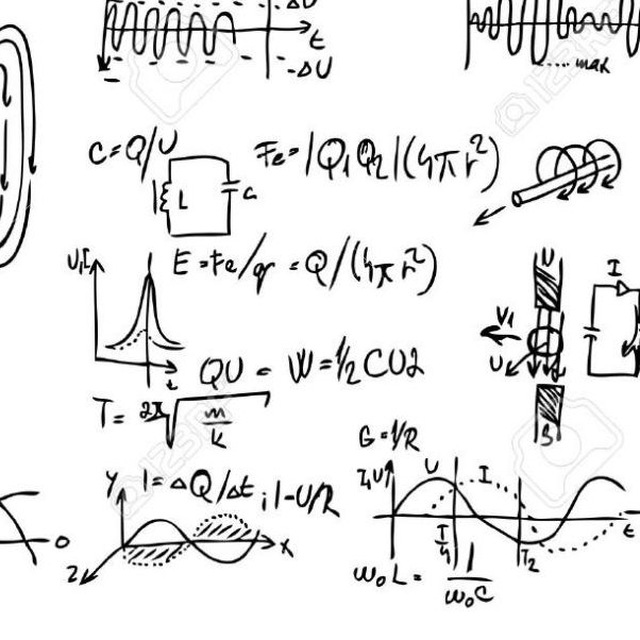 -ΔU
t
-ΔU
max
C=Q/U
Fe=|Q₁Q₂|(4πr²)
L
C
U,I
E=Fe/q=Q/(4πr²)
t
N
I
V₁
U
S
QU = W=½CU2
T=2π√m/K
G=1/R
Y
I=ΔQ/Δt; I-U/R
X
Z
0
I,U
U
I
T/4
T₂
t
ω₀L=1/ω₀C